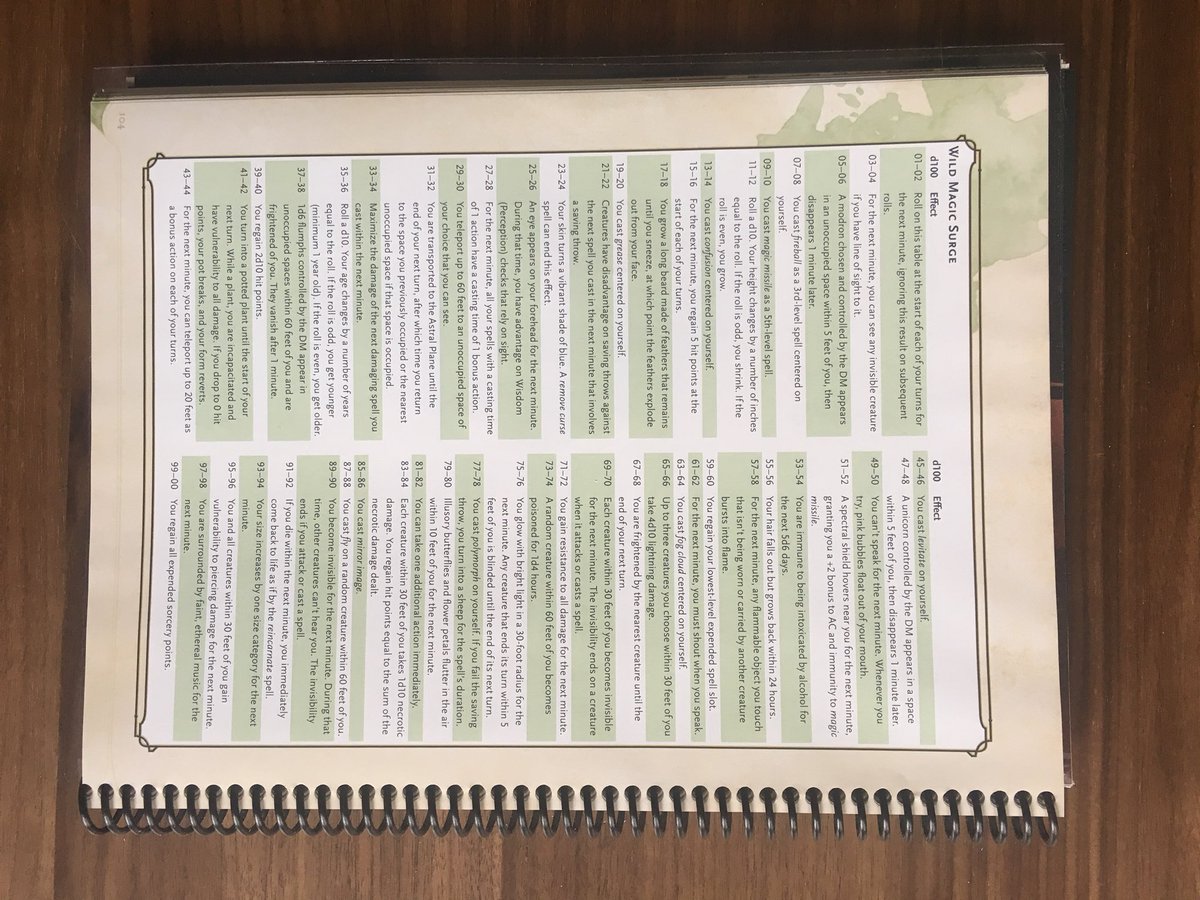 WILD MAGIC SURGE
d100 Effect
01–02 Roll on this table at the start of each of your turns for
the next minute, ignoring this result on subsequent
rolls.
03–04 For the next minute, you can see any invisible creature
if you have line of sight to it.
05–06 A modron chosen and controlled by the DM appears
in an unoccupied space within 5 feet of you, then
disappears 1 minute later.
07–08 You cast fireball as a 3rd-level spell centered on
yourself.
09–10 You cast magic missile as a 5th-level spell.
11–12 Roll a d10. Your height changes by a number of inches
equal to the roll. If the roll is odd, you shrink. If the
roll is even, you grow.
13–14 You cast confusion centered on yourself.
15–16 For the next minute, you regain 5 hit points at the
start of each of your turns.
17–18 You grow a long beard made of feathers that remains
until you sneeze, at which point the feathers explode
out from your face.
19–20 You cast grease centered on yourself.
21–22 Creatures have disadvantage on saving throws against
the next spell you cast in the next minute that involves
a saving throw.
23–24 Your skin turns a vibrant shade of blue. A remove curse
spell can end this effect.
25–26 An eye appears on your forehead for the next minute.
During that time, you have advantage on Wisdom
(Perception) checks that rely on sight.
27–28 For the next minute, all your spells with a casting time
of 1 action have a casting time of 1 bonus action.
29–30 You teleport up to 60 feet to an unoccupied space of
your choice that you can see.
31–32 You are transported to the Astral Plane until the
end of your next turn, after which time you return
to the space you previously occupied or the nearest
unoccupied space if that space is occupied.
33–34 Maximize the damage of the next damaging spell you
cast within the next minute.
35–36 Roll a d10. Your age changes by a number of years
equal to the roll. If the roll is odd, you get younger
(minimum 1 year old). If the roll is even, you get older.
37–38 1d6 flumphs controlled by the DM appear in
unoccupied spaces within 60 feet of you and are
frightened of you. They vanish after 1 minute.
39–40 You regain 2d10 hit points.
41–42 You turn into a potted plant until the start of your
next turn. While a plant, you are incapacitated and
have vulnerability to all damage. If you drop to 0 hit
points, your pot breaks, and your form reverts.
43–44 For the next minute, you can teleport up to 20 feet as
a bonus action on each of your turns.
d100 Effect
45–46 You cast levitate on yourself.
47–48 A unicorn controlled by the DM appears in a space
within 5 feet of you, then disappears 1 minute later.
49–50 You can't speak for the next minute. Whenever you
try, pink bubbles float out of your mouth.
51–52 A spectral shield hovers near you for the next minute,
granting you a +2 bonus to AC and immunity to magic
missile.
53–54 You are immune to being intoxicated by alcohol for
the next 5d6 days.
55–56 Your hair falls out but grows back within 24 hours.
57–58 For the next minute, any flammable object you touch
that isn't being worn or carried by another creature
bursts into flame.
59–60 You regain your lowest-level expended spell slot.
61–62 For the next minute, you must shout when you speak.
63–64 You cast fog cloud centered on yourself.
65–66 Up to three creatures you choose within 30 feet of you
take 4d10 lightning damage.
67–68 You are frightened by the nearest creature until the
end of your next turn.
69–70 Each creature within 30 feet of you becomes invisible
for the next minute. The invisibility ends on a creature
when it attacks or casts a spell.
71–72 You gain resistance to all damage for the next minute.
73–74 A random creature within 60 feet of you becomes
poisoned for 1d4 hours.
75–76 You glow with bright light in a 30-foot radius for the
next minute. Any creature that ends its turn within 5
feet of you is blinded until the end of its next turn.
77–78 You cast polymorph on yourself. If you fail the saving
throw, you turn into a sheep for the spell's duration.
79–80 Illusory butterflies and flower petals flutter in the air
within 10 feet of you for the next minute.
81–82 You can take one additional action immediately.
83–84 Each creature within 30 feet of you takes 1d10 necrotic
damage. You regain hit points equal to the sum of the
necrotic damage dealt.
85–86 You cast mirror image.
87–88 You cast fly on a random creature within 60 feet of you.
89–90 You become invisible for the next minute. During that
time, other creatures can't hear you. The invisibility
ends if you attack or cast a spell.
91–92 If you die within the next minute, you immediately
come back to life as if by the reincarnate spell.
93–94 Your size increases by one size category for the next
minute.
95–96 You and all creatures within 30 feet of you gain
vulnerability to piercing damage for the next minute.
97–98 You are surrounded by faint, ethereal music for the
next minute.
99–00 You regain all expended sorcery points.
104